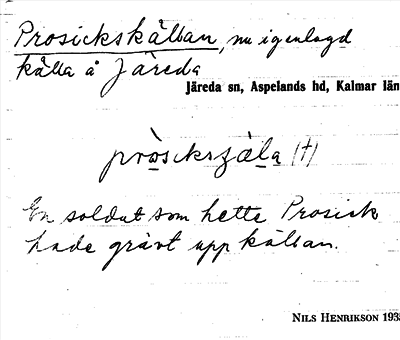 Prosickskällan, nu igenlagd
källa å Järeda
Järeda sn, Aspelands hd, Kalmar län
pròsıckszäla (†)
En soldat som hette Prosick
hade grävt upp källan.
NILS HENRIKSON 193